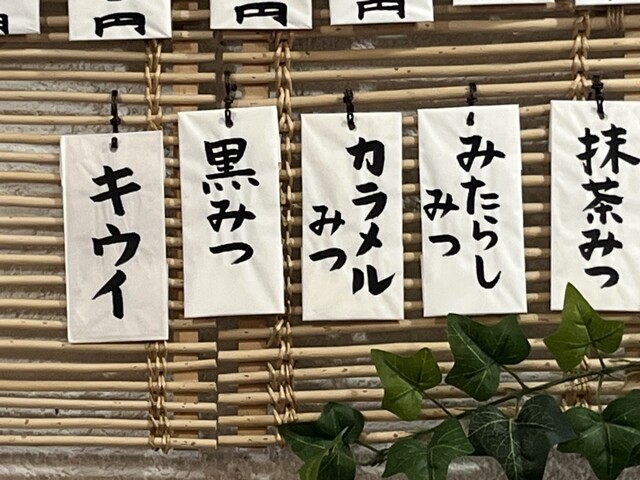 円
円
円
円
キウイ
黒みつ
カラメル
みつ
みたらし
みつ
抹茶みつ